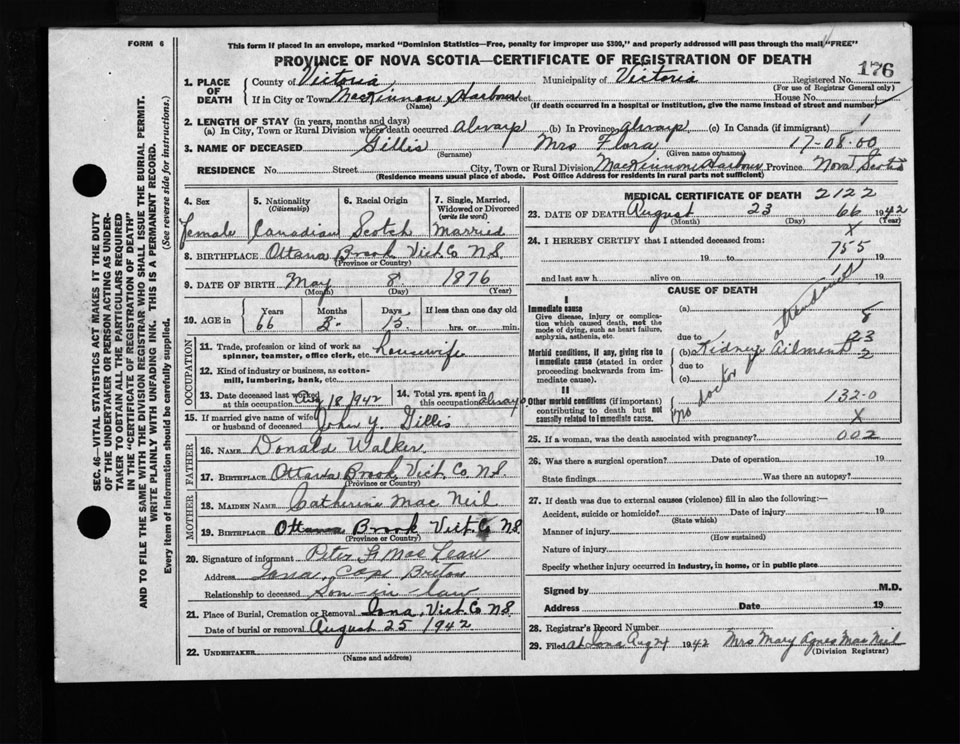 FORM 6
This form if placed in an envelope, marked "Dominion Statistics—Free, penalty for improper use $300," and properly addressed will pass through the mail "FREE"
PROVINCE OF NOVA SCOTIA—CERTIFICATE OF REGISTRATION OF DEATH
176
1. PLACE OF DEATH County of Victoria Municipality of Victoria Registered No.
(For use of Registrar General only)
If in City or Town MacKinnon Harbour Street House No.
(Name) (If death occurred in a hospital or institution, give the name instead of street and number)
2. LENGTH OF STAY (in years, months and days)
(a) In City, Town or Rural Division where death occurred always (b) In Province always (c) In Canada (if immigrant) 1
3. NAME OF DECEASED Gillis Mrs Flora 17-08-00
(Surname) (Given name or names)
RESIDENCE No. Street City, Town or Rural Division MacKinnon Harbour Province Nova Scotia
(Residence means usual place of abode. Post Office Address for residents in rural parts not sufficient)
SEC. 46—VITAL STATISTICS ACT MAKES IT THE DUTY
OF THE UNDERTAKER OR PERSON ACTING AS UNDERTAKER TO OBTAIN ALL THE PARTICULARS REQUIRED
IN THE "CERTIFICATE OF REGISTRATION OF DEATH"
AND TO FILE THE SAME WITH THE DIVISION REGISTRAR WHO SHALL ISSUE THE BURIAL PERMIT.
WRITE PLAINLY WITH UNFADING INK. THIS IS A PERMANENT RECORD.
Every item of information should be carefully supplied. (See reverse side for instructions.)
4. Sex 5. Nationality 6. Racial Origin 7. Single, Married,
(Citizenship) Widowed or Divorced
(write the word)
Female Canadian Scotch Married
8. BIRTHPLACE Ottawa Brook Vict. Co N S
(Province or Country)
9. DATE OF BIRTH May 8 1876
(Month) (Day) (Year)
10. AGE in Years Months Days If less than one day old
66 3 15 hrs. or min.
OCCUPATION
11. Trade, profession or kind of work as
spinner, teamster, office clerk, etc. housewife
12. Kind of industry or business, as cotton-
mill, lumbering, bank, etc.
13. Date deceased last worked
at this occupation Aug 18 1942
14. Total yrs. spent in
this occupation always
15. If married give name of wife
or husband of deceased John Y. Gillis
FATHER
16. NAME Donald Walker
17. BIRTHPLACE Ottawa Brook, Vict. Co N.S.
(Province or Country)
MOTHER
18. MAIDEN NAME Catherine Mac Neil
19. BIRTHPLACE Ottawa Brook Vict. Co N.S.
(Province or Country)
20. Signature of informant Peter F. Mac Lean
Address Iona, Cape Breton
Relationship to deceased Son-in-law
21. Place of Burial, Cremation or Removal Iona, Vict. Co N.S.
Date of burial or removal August 25 1942
22. UNDERTAKER
(Name and address)
MEDICAL CERTIFICATE OF DEATH 2122
23. DATE OF DEATH August 23 66 1942
(Month) (Day) (Year)
X
24. I HEREBY CERTIFY that I attended deceased from:
755
19 to 19
10
and last saw h alive on 19
CAUSE OF DEATH
I
Immediate cause
Give disease, injury or complication which caused death, not the mode of dying, such as heart failure, asphyxia, asthenia, etc.
(a) 8
due to 23
Morbid conditions, if any, giving rise to immediate cause (stated in order proceeding backwards from immediate cause).
(b) Kidney Ailment 2
due to
(c)
II
Other morbid conditions (if important) contributing to death but not causally related to immediate cause.
no doctor attendant
132-0
X
25. If a woman, was the death associated with pregnancy? 002
26. Was there a surgical operation? Date of operation 19
State findings Was there an autopsy?
27. If death was due to external causes (violence) fill in also the following:—
Accident, suicide or homicide? Date of injury 19
(State which)
Manner of injury
(How sustained)
Nature of injury
Specify whether injury occurred in industry, in home, or in public place
Signed by M.D.
Address Date 19
28. Registrar's Record Number
29. Filed at Iona Aug 24 1942 Mrs Mary Agnes Mac Neil
(Division Registrar)